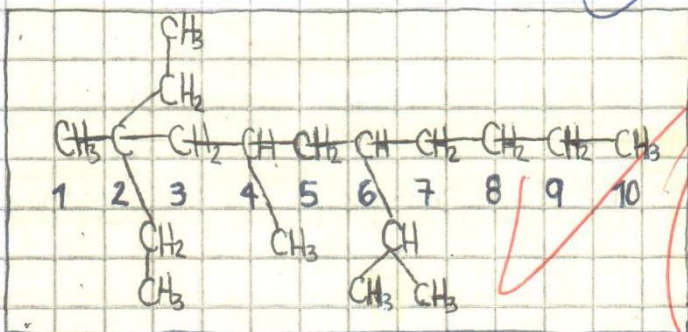 CH₃
CH₂
CH₃ C CH₂ CH CH₂ CH CH₂ CH₂ CH₂ CH₃
1 2 3 4 5 6 7 8 9 10
CH₂ CH₃ CH
CH₃ CH₃ CH₃